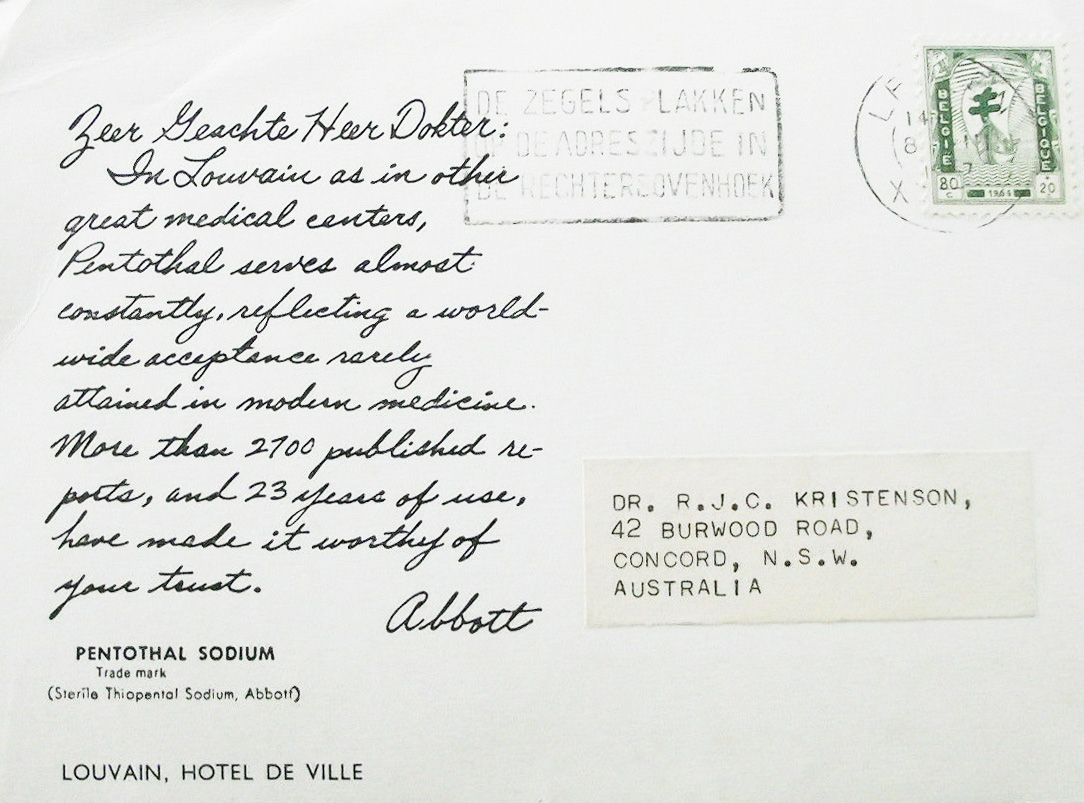 Zeer Geachte Heer Dokter:
In Louvain as in other
great medical centers,
Pentothal serves almost
constantly, reflecting a world-
wide acceptance rarely
attained in modern medicine.
More than 2700 published re-
ports, and 23 years of use,
have made it worthy of
your trust.
Abbott
PENTOTHAL SODIUM
Trade mark
(Sterile Thiopental Sodium, Abbott)
LOUVAIN, HOTEL DE VILLE
DE ZEGELS PLAKKEN
OP DE ADRESZIJDE IN
DE RECHTERBOVENHOEK
BELGIË
BELGIQUE
80 c + 20
DR. R.J.C. KRISTENSON,
42 BURWOOD ROAD,
CONCORD, N.S.W.
AUSTRALIA